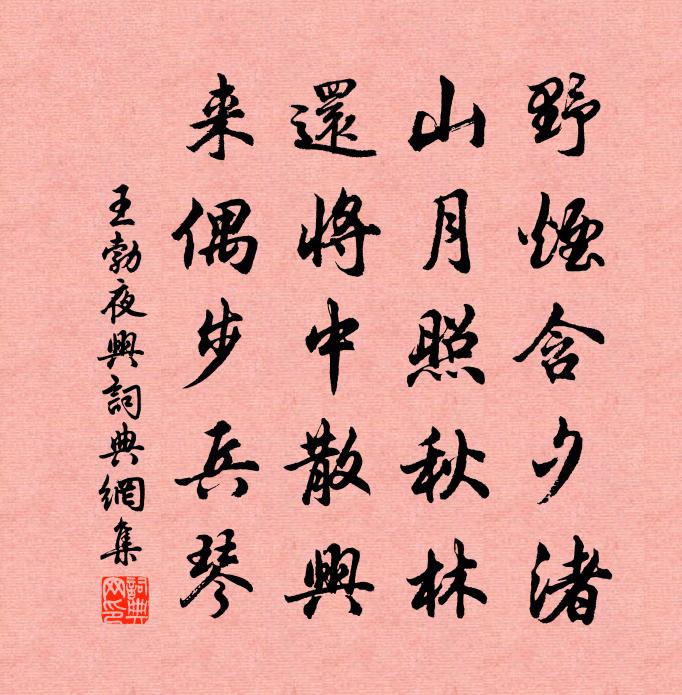 野煙含夕渚
山月照秋林
還將中散興
来偶步兵琴
王勃夜興詞典網集
詞典网印